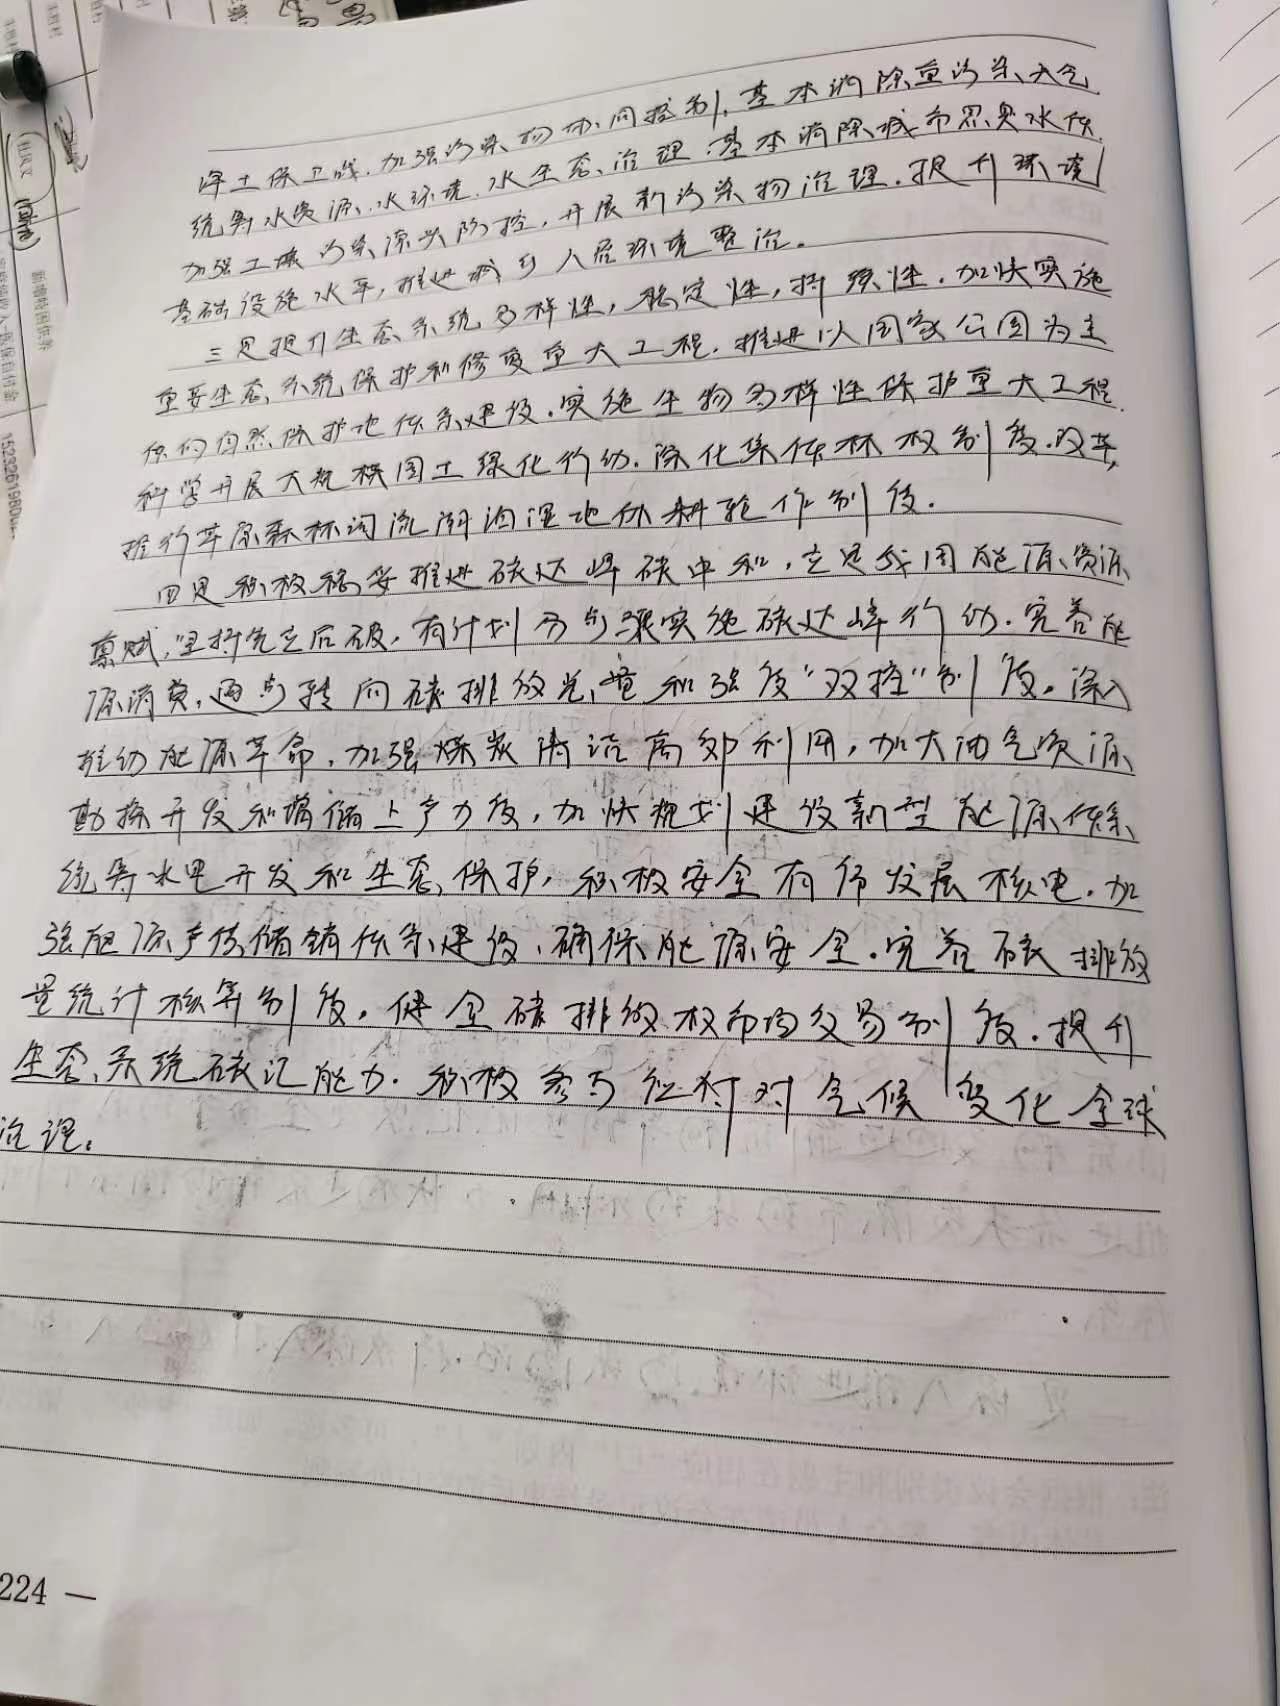 净土保卫战.加强污染物协同控制,基本消除重污染天气
统筹水资源.水环境.水生态、治理.基本消除城市黑臭水体.
加强土壤污染源头防控,开展新污染物治理.提升环境
基础设施水平,推进城乡人居环境整治。
三是提升生态系统多样性,稳定性,持续性.加快实施
重要生态、系统保护和修复重大工程.推进以国家公园为主
体的自然保护地体系建设.实施生物多样性保护重大工程.
科学开展大规模国土绿化行动.深化集体林权制度.改革,
推行草原森林河流湖泊湿地休耕轮作制度.
四是积极稳妥推进碳达峰碳中和,立足我国能源、资源
禀赋,坚持先立后破,有计划分步骤实施碳达峰行动.完善能
源消费,逐步转向碳排放总量和强度"双控"制度。深入
推动能源革命.加强煤炭清洁高效利用,加大油气资源
勘探开发和增储上产力度,加快规划建设新型能源体系
统筹水电开发和生态、保护,积极安全有序发展核电.加
强能源产供储销体系建设、确保能源安全.完善碳排放
量统计核算制度.健全碳排放权市场交易制度.提升
生态、系统碳汇能力.积极参与应对对气候变化全球
治理。
224 —
新增特困供养